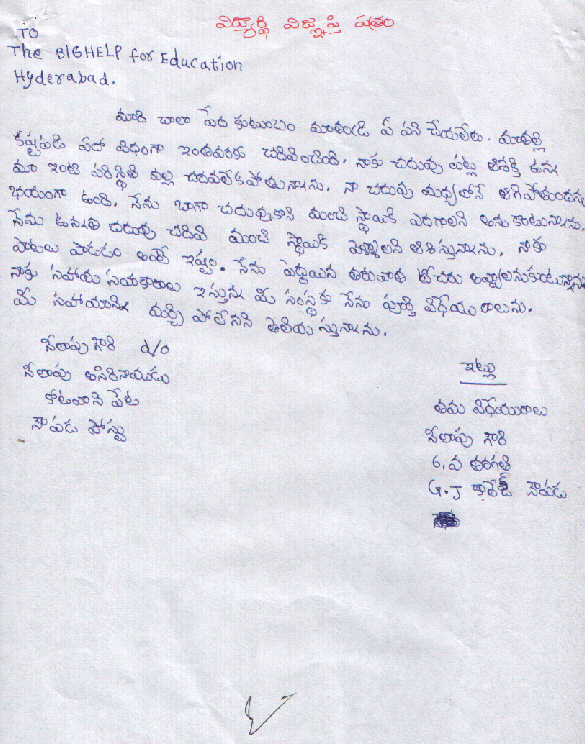 విద్యార్థి విజ్ఞప్తి పత్రం
TO
The BIGHELP for Education
Hyderabad.
మాది చాలా పేద కుటుంబం మాతండ్రి ఏ పని చేయలేరు. మాతల్లి
కష్టపడి ఏదో విధంగా ఇంతవరకు చదివించింది. నాకు చదువు పట్ల ఆసక్తి ఉన్న
మా ఇంటి పరిస్థితి వల్ల చదవలేకపోతున్నాను. నా చదువు మధ్యలోనే ఆగిపోతుందని
భయంగా ఉంది. నేను బాగా చదువుకొని మంచి స్థాయికి ఎదగాలని అనుకుంటున్నాను.
నేను ఉన్నత చదువు చదివి మంచి స్థాయికి వెళ్ళాలని ఆశిస్తున్నాను. నాకు
పాటలు పాడడం అంటే ఇష్టం. నేను పెద్దయిన తరువాత టీచరు అవ్వాలనుకుంటున్నాను
నాకు సహాయ సహకారాలు ఇస్తున్న మీ సంస్థకు నేను పూర్తి విధేయురాలును.
మీ సహాయాన్ని మర్చి పోలేనని తెలియ స్తున్నాను.
గౌరి d/o
కోటవాని పేట
పోస్టు
ఇట్లు
తమ విధేయురాలు
గౌరి
6, వ తరగతి
G.J కాలేజ్